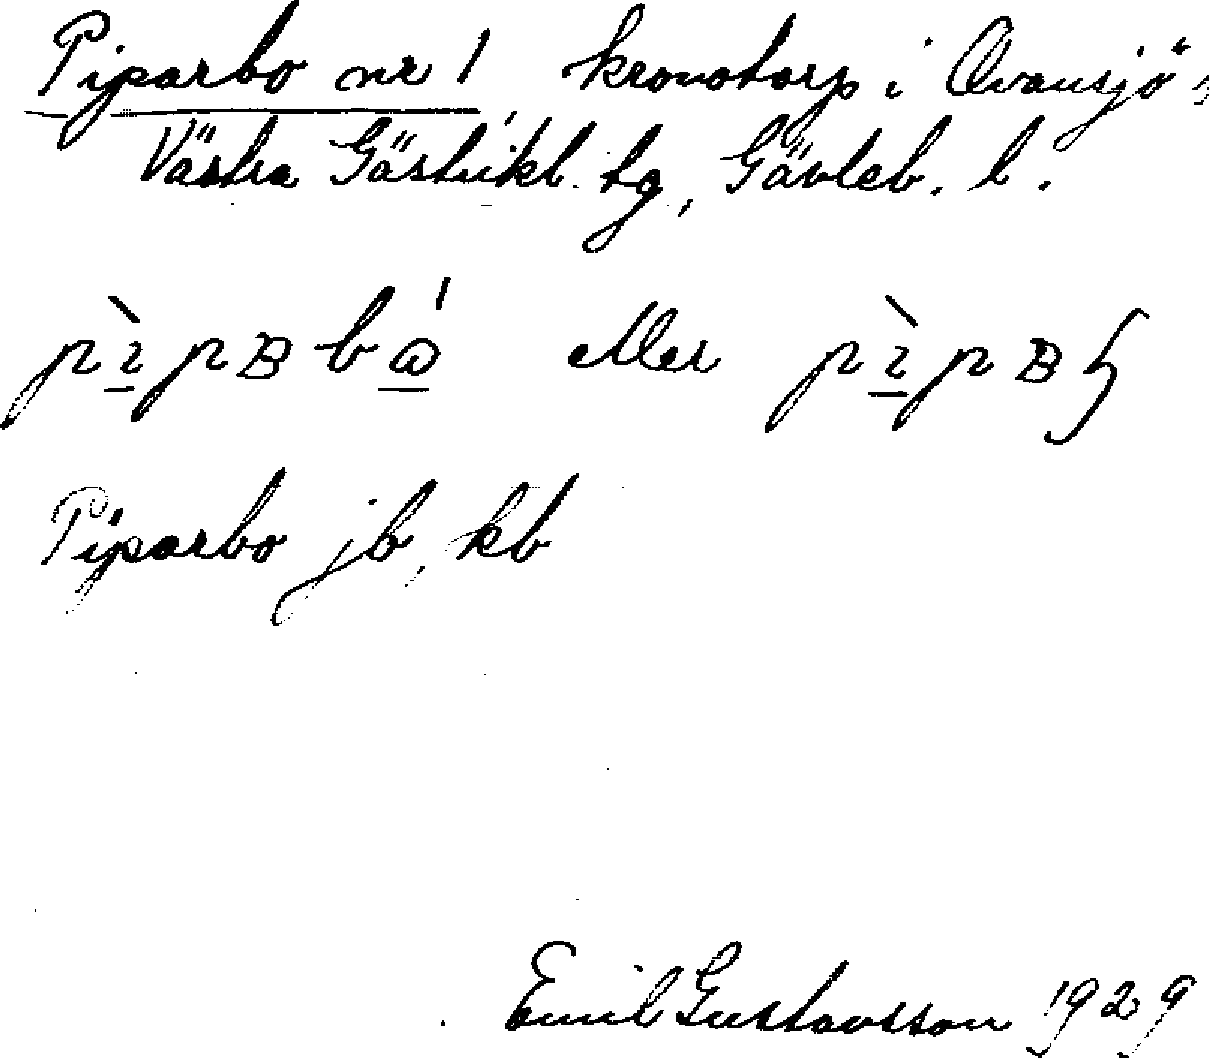 Piparbo nr 1, kronotorp i Ovansjö,
Västra Gästrikl. tg, Gävleb. l.
eller
Piparbo jb, kb
Emil Gustavsson 1929